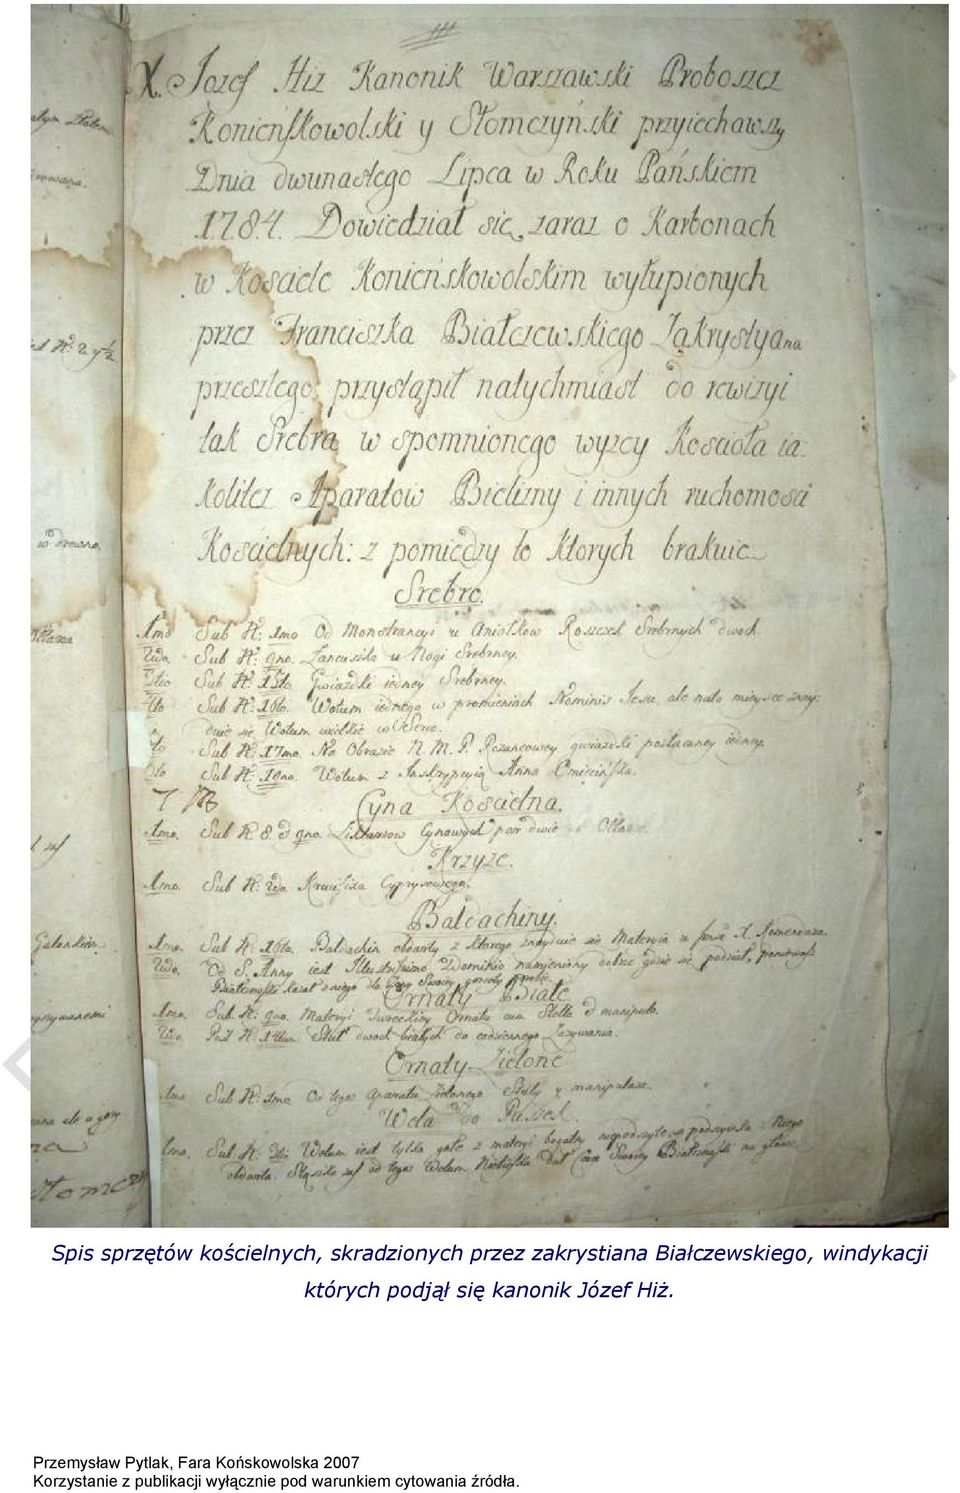 X. Jozef Hiż Kanonik Warszawski Proboszcz
Konieńskowolski y Słomczyński przyiechawszy
Dnia dwunastego Lipca w Roku Pańskiem
1784. Dowiedział się zaraz o Karbonach
w Kosciele Konieńskowolskim wyłupionych
przez Franciszka Białczewskiego Zakrystyana
przeszłego, przystąpił natychmiast do rewizyi
tak Srebra w spomnionego wyżey Kościoła ia-
koliteż Aparatow Bielizny i innych ruchomosci
Kościelnych: z pomiędzy to ktorych brakuie
Srebro.
1mo Sub N: 1mo Od Monstrancyi u Aniołkow Roszczek Srebrnych dwoch
2do. Sub N: 9no. Łancuszka u Nogi Srebrney.
3tio Sub N: 15to. Gwiazdki iedney Srebrney.
4to Sub N: 16to. Wotum iednego w promieniach Nominis Jesu, ale na to mieysce znay-
duie się Wotum wielkie
5to Sub N: 17mo. Na Obrazie N. M. P. Rożancowey gwiazdki pozłacaney iedney.
6to Sub N: 19no. Wotum z Inskrypcyią Anna
Cyna Koscielna.
1mo. Sub N: 8. d 9no. Lichtarzow Cynowych par dwie
Krzyże.
1mo. Sub N: 2do Krucifixa Cyprysowego.
Baldachiny.
1mo. Sub N: 16to. Baldachin obdarty z ktorego znayduie się Materyia u X. Komendarza.
2do. Od S. Anny iest dobrze gdzie się podział, ponieważ
Białczewski kazał z niego dla Cory Swoiey
Ornaty Białe
1mo. Sub N: 9no. Materyi Tureckiey Ornatu cum Stolla d manipulo.
2do. Post N: 14tum Stuł dwoch białych do codziennego Zazywania.
Ornaty Zielone
1mo Sub N: 1mo. Od tego Aparatu Zielonego Stuły y manipularza.
Wela Do Puszek
1mo. Sub N: Welum iest tylko gołe z materyi bogatey a podszewka z Niego
obdarta. Białczewski na głowę.
Spis sprzętów kościelnych, skradzionych przez zakrystiana Białczewskiego, windykacji
których podjął się kanonik Józef Hiż.
Przemysław Pytlak, Fara Końskowolska 2007
Korzystanie z publikacji wyłącznie pod warunkiem cytowania źródła.